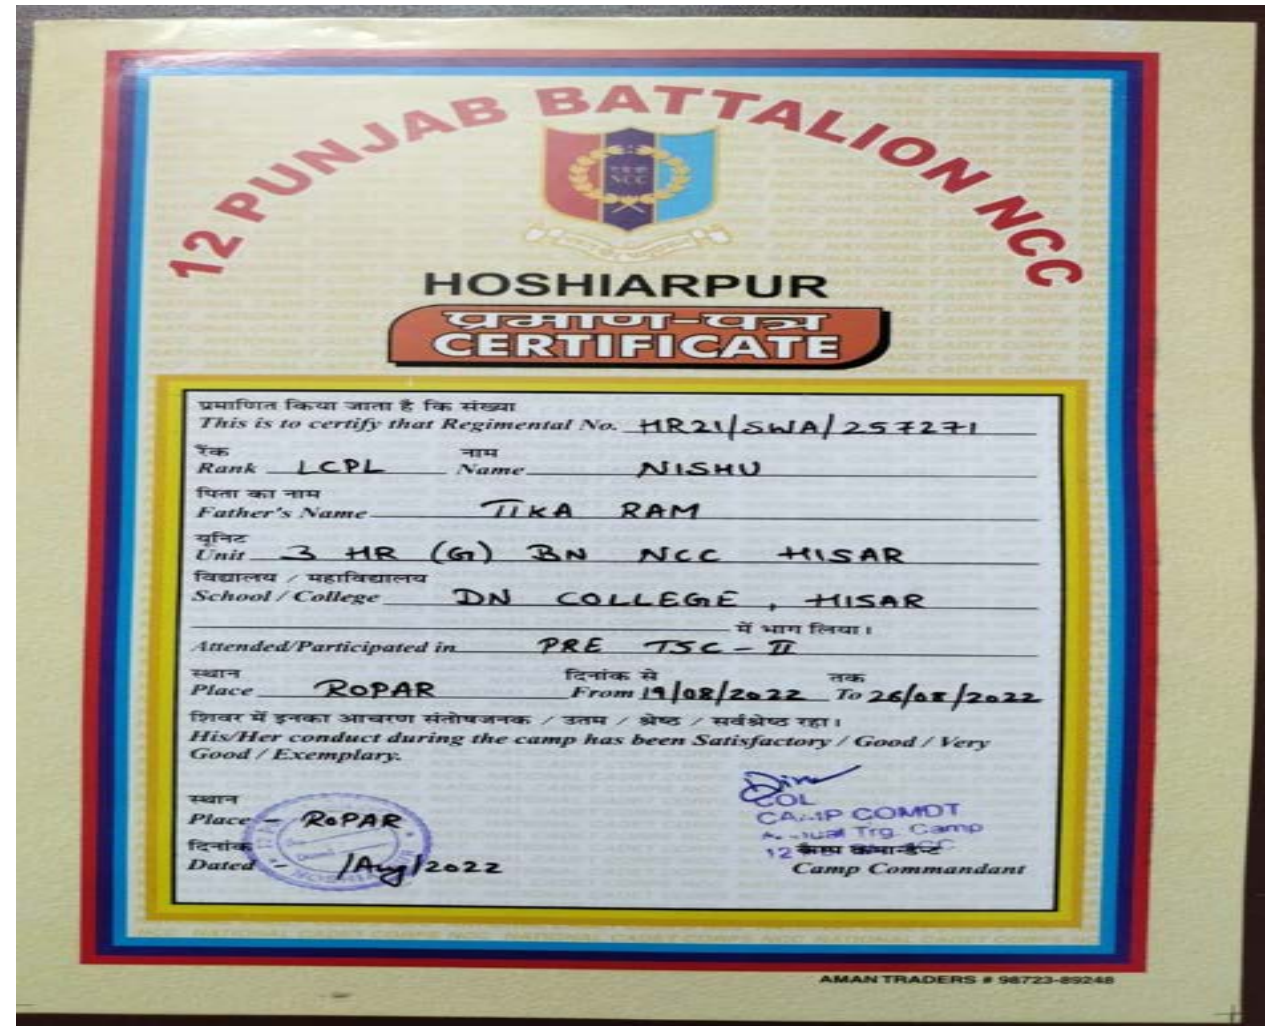 12 PUNJAB BATTALION NCC
NCC
HOSHIARPUR
प्रमाण-पत्र
CERTIFICATE
प्रमाणित किया जाता है कि संख्या
This is to certify that Regimental No. HR21/SWA/257271
रैंक नाम
Rank LCPL Name NISHU
पिता का नाम
Father's Name TIKA RAM
यूनिट
Unit 3 HR (G) BN NCC HISAR
विद्यालय / महाविद्यालय
School / College DN COLLEGE, HISAR
में भाग लिया।
Attended/Participated in PRE TSC - II
स्थान दिनांक से तक
Place ROPAR From 19/08/2022 To 26/08/2022
शिवर में इनका आचरण संतोषजनक / उतम / श्रेष्ठ / सर्वश्रेष्ठ रहा।
His/Her conduct during the camp has been Satisfactory / Good / Very
Good / Exemplary.
स्थान
Place - ROPAR
COL
CAMP COMDT
Trg. Camp
दिनांक
12 कैम्प कमान्डेन्ट
Dated - /Aug/2022
Camp Commandant
NCC NATIONAL CADET CORPS NCC NATIONAL CADET CORPS NCC NATIONAL CADET CORPS
AMAN TRADERS # 98723-89248